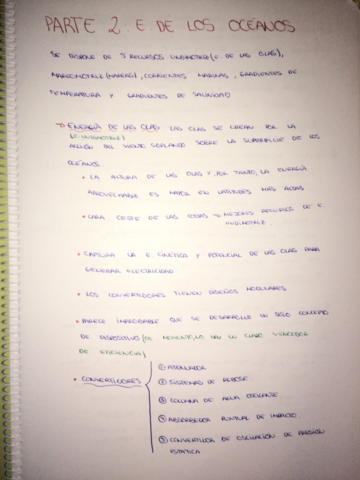 PARTE 2. E. DE LOS OCÉANOS
SE DISPONE DE 5 RECURSOS UNDIMOTRIZ (E. DE LAS OLAS),
MAREOMOTRIZ (MAREAS), CORRIENTES MARINAS, GRADIENTES DE
TEMPERATURA Y GRADIENTES DE SALINIDAD
ENERGÍA DE LAS OLAS LAS OLAS SE CREAN POR LA
(E. UNDIMOTRIZ)
ACCIÓN DEL VIENTO SOPLANDO SOBRE LA SUPERFICIE DE LOS
OCÉANOS
• LA ALTURA DE LAS OLAS Y, POR TANTO, LA ENERGÍA
APROVECHABLE ES MAYOR EN LATITUDES MÁS ALTAS
• CARA OESTE DE LAS COSTAS → MEJORES RECURSOS DE E.
UNDIMOTRIZ
• CAPTURA LA E. CINÉTICA Y POTENCIAL DE LAS OLAS PARA
GENERAR ELECTRICIDAD
• LOS CONVERTIDORES TIENEN DISEÑOS MODULARES
• PARECE IMPROBABLE QUE SE DESARROLLE UN SOLO CONCEPTO
DE DISPOSITIVO (DE MOMENTO, NO HAY UN CLARO VENCEDOR
DE EFICIENCIA)
• CONVERTIDORES
① ATENUADOR
② SISTEMAS DE REBOSE
③ COLUMNA DE AGUA OSCILANTE
④ ABSORBEDOR PUNTUAL DE IMPACTO
⑤ CONVERTIDOR DE OSCILACIÓN DE PRESIÓN
ESTÁTICA